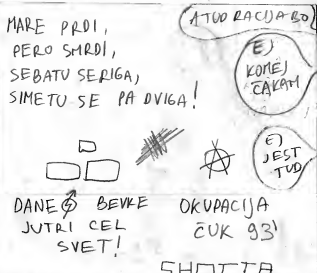 MARE PRDI,
PERO SMRDI,
SEBATU SERIGA,
SIMETU SE PA DVIGA!
A TUD RACIJA BO
EJ
KOMEJ
ČAKAM
EJ
JEST
TUD
DANES BEVKE
JUTRI CEL
SVET!
OKUPACIJA
ČUK 93'